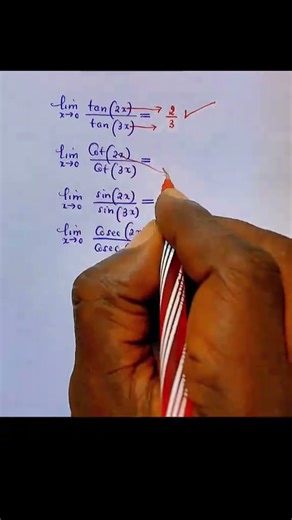 lim x→0 tan(2x)/tan(3x) = 2/3 ✓
lim x→0 Cot(2x)/Cot(3x) =
lim x→0 sin(2x)/sin(3x) =
lim x→0 Cosec(2x/Cosec(